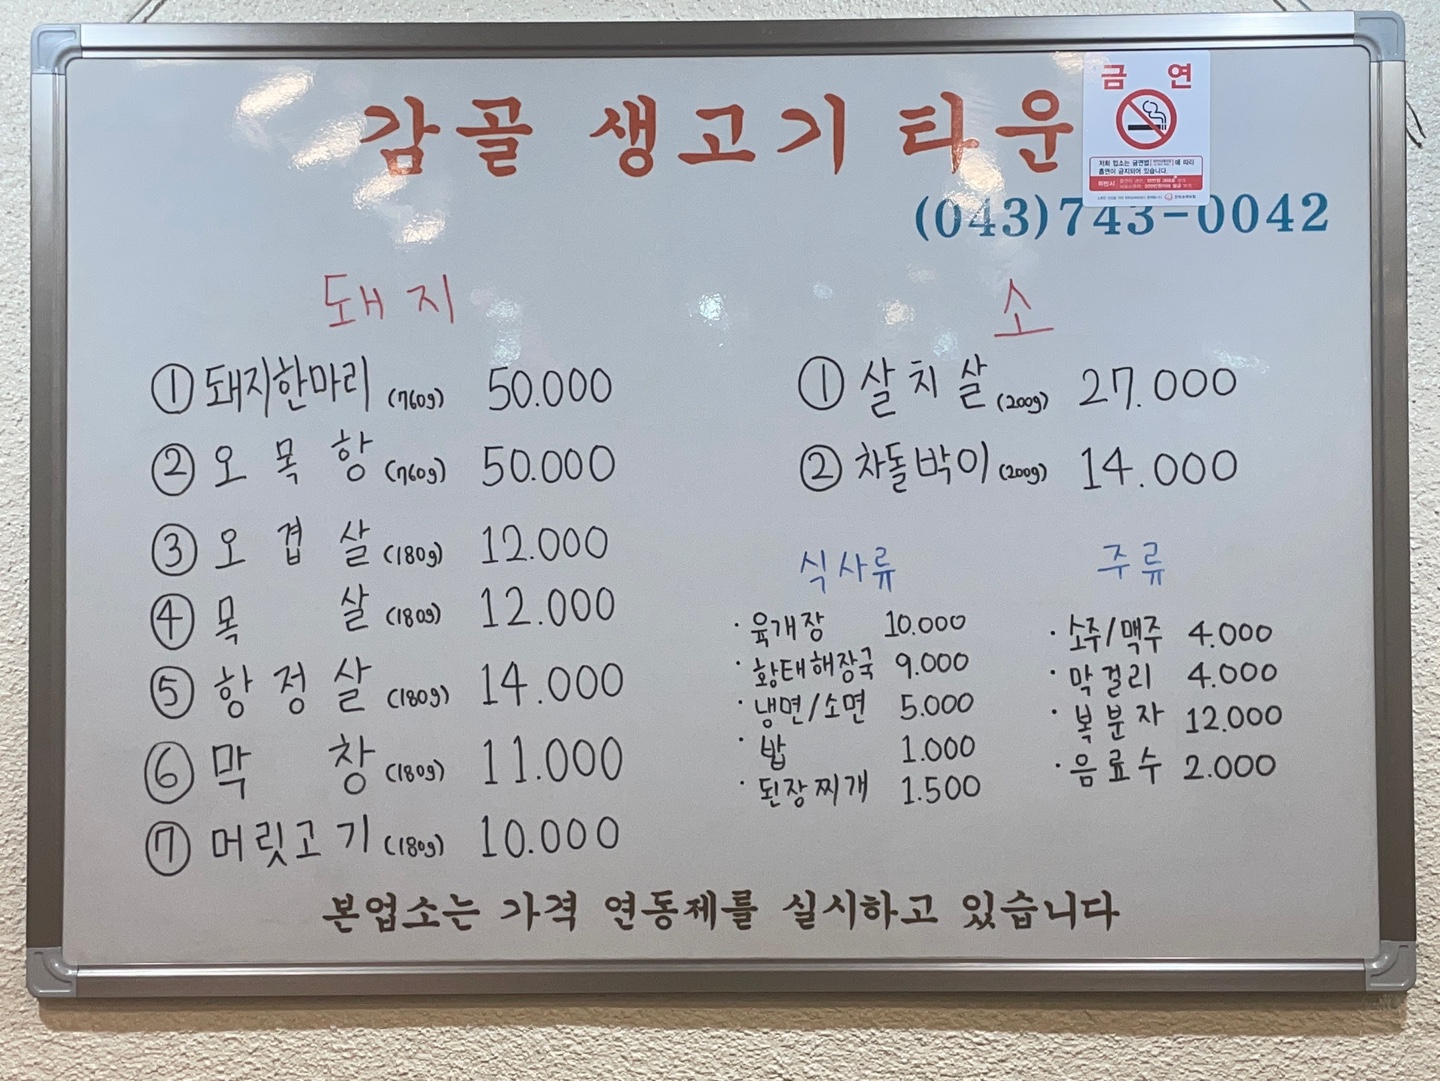 감골 생고기 타운
금 연
저희 업소는 금연법
에 따라
흡연이 금지되어 있습니다.
위반시
(043)743-0042
돼지
① 돼지한마리 (760g) 50.000
② 오목항 (760g) 50.000
③ 오겹살 (180g) 12.000
④ 목살 (180g) 12.000
⑤ 항정살 (180g) 14.000
⑥ 막창 (180g) 11.000
⑦ 머릿고기 (180g) 10.000
소
① 살치살 (200g) 27.000
② 차돌박이 (200g) 14.000
식사류
· 육개장 10.000
· 황태해장국 9.000
· 냉면/소면 5.000
· 밥 1.000
· 된장찌개 1.500
주류
· 소주/맥주 4.000
· 막걸리 4.000
· 복분자 12.000
· 음료수 2.000
본업소는 가격 연동제를 실시하고 있습니다